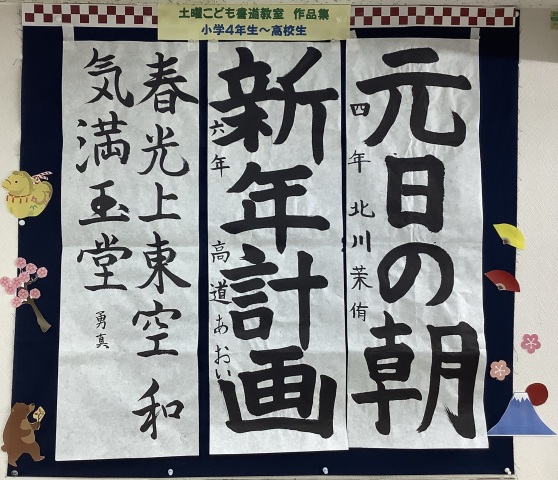 土曜こども書道教室 作品集
小学4年生～高校生
元日の朝
四年 北川茉侑
新年計画
六年 高道あおい
春光上東空和
気満玉堂
勇真